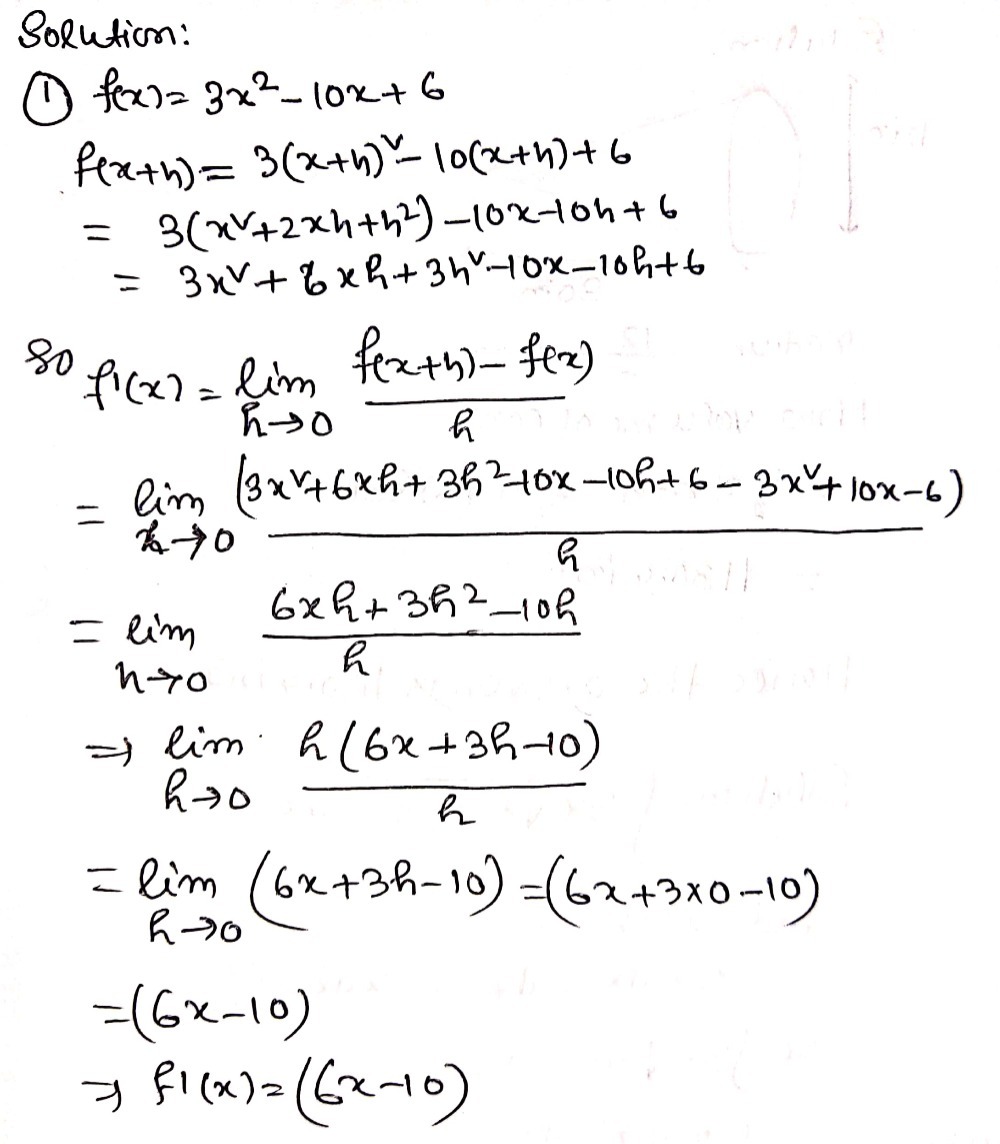 Solution:
① f(x) = 3x² - 10x + 6
f(x+h) = 3(x+h)ᵛ - 10(x+h) + 6
= 3(xᵛ + 2xh + h²) - 10x - 10h + 6
= 3xᵛ + 6xh + 3hᵛ - 10x - 10h + 6
So f'(x) = lim h→0 (f(x+h) - f(x)) / h
= lim h→0 (3xᵛ + 6xh + 3h² - 10x - 10h + 6 - 3xᵛ + 10x - 6) / h
= lim h→0 (6xh + 3h² - 10h) / h
⇒ lim h→0 h(6x + 3h - 10) / h
= lim h→0 (6x + 3h - 10) = (6x + 3×0 - 10)
= (6x - 10)
⇒ f'(x) = (6x - 10)